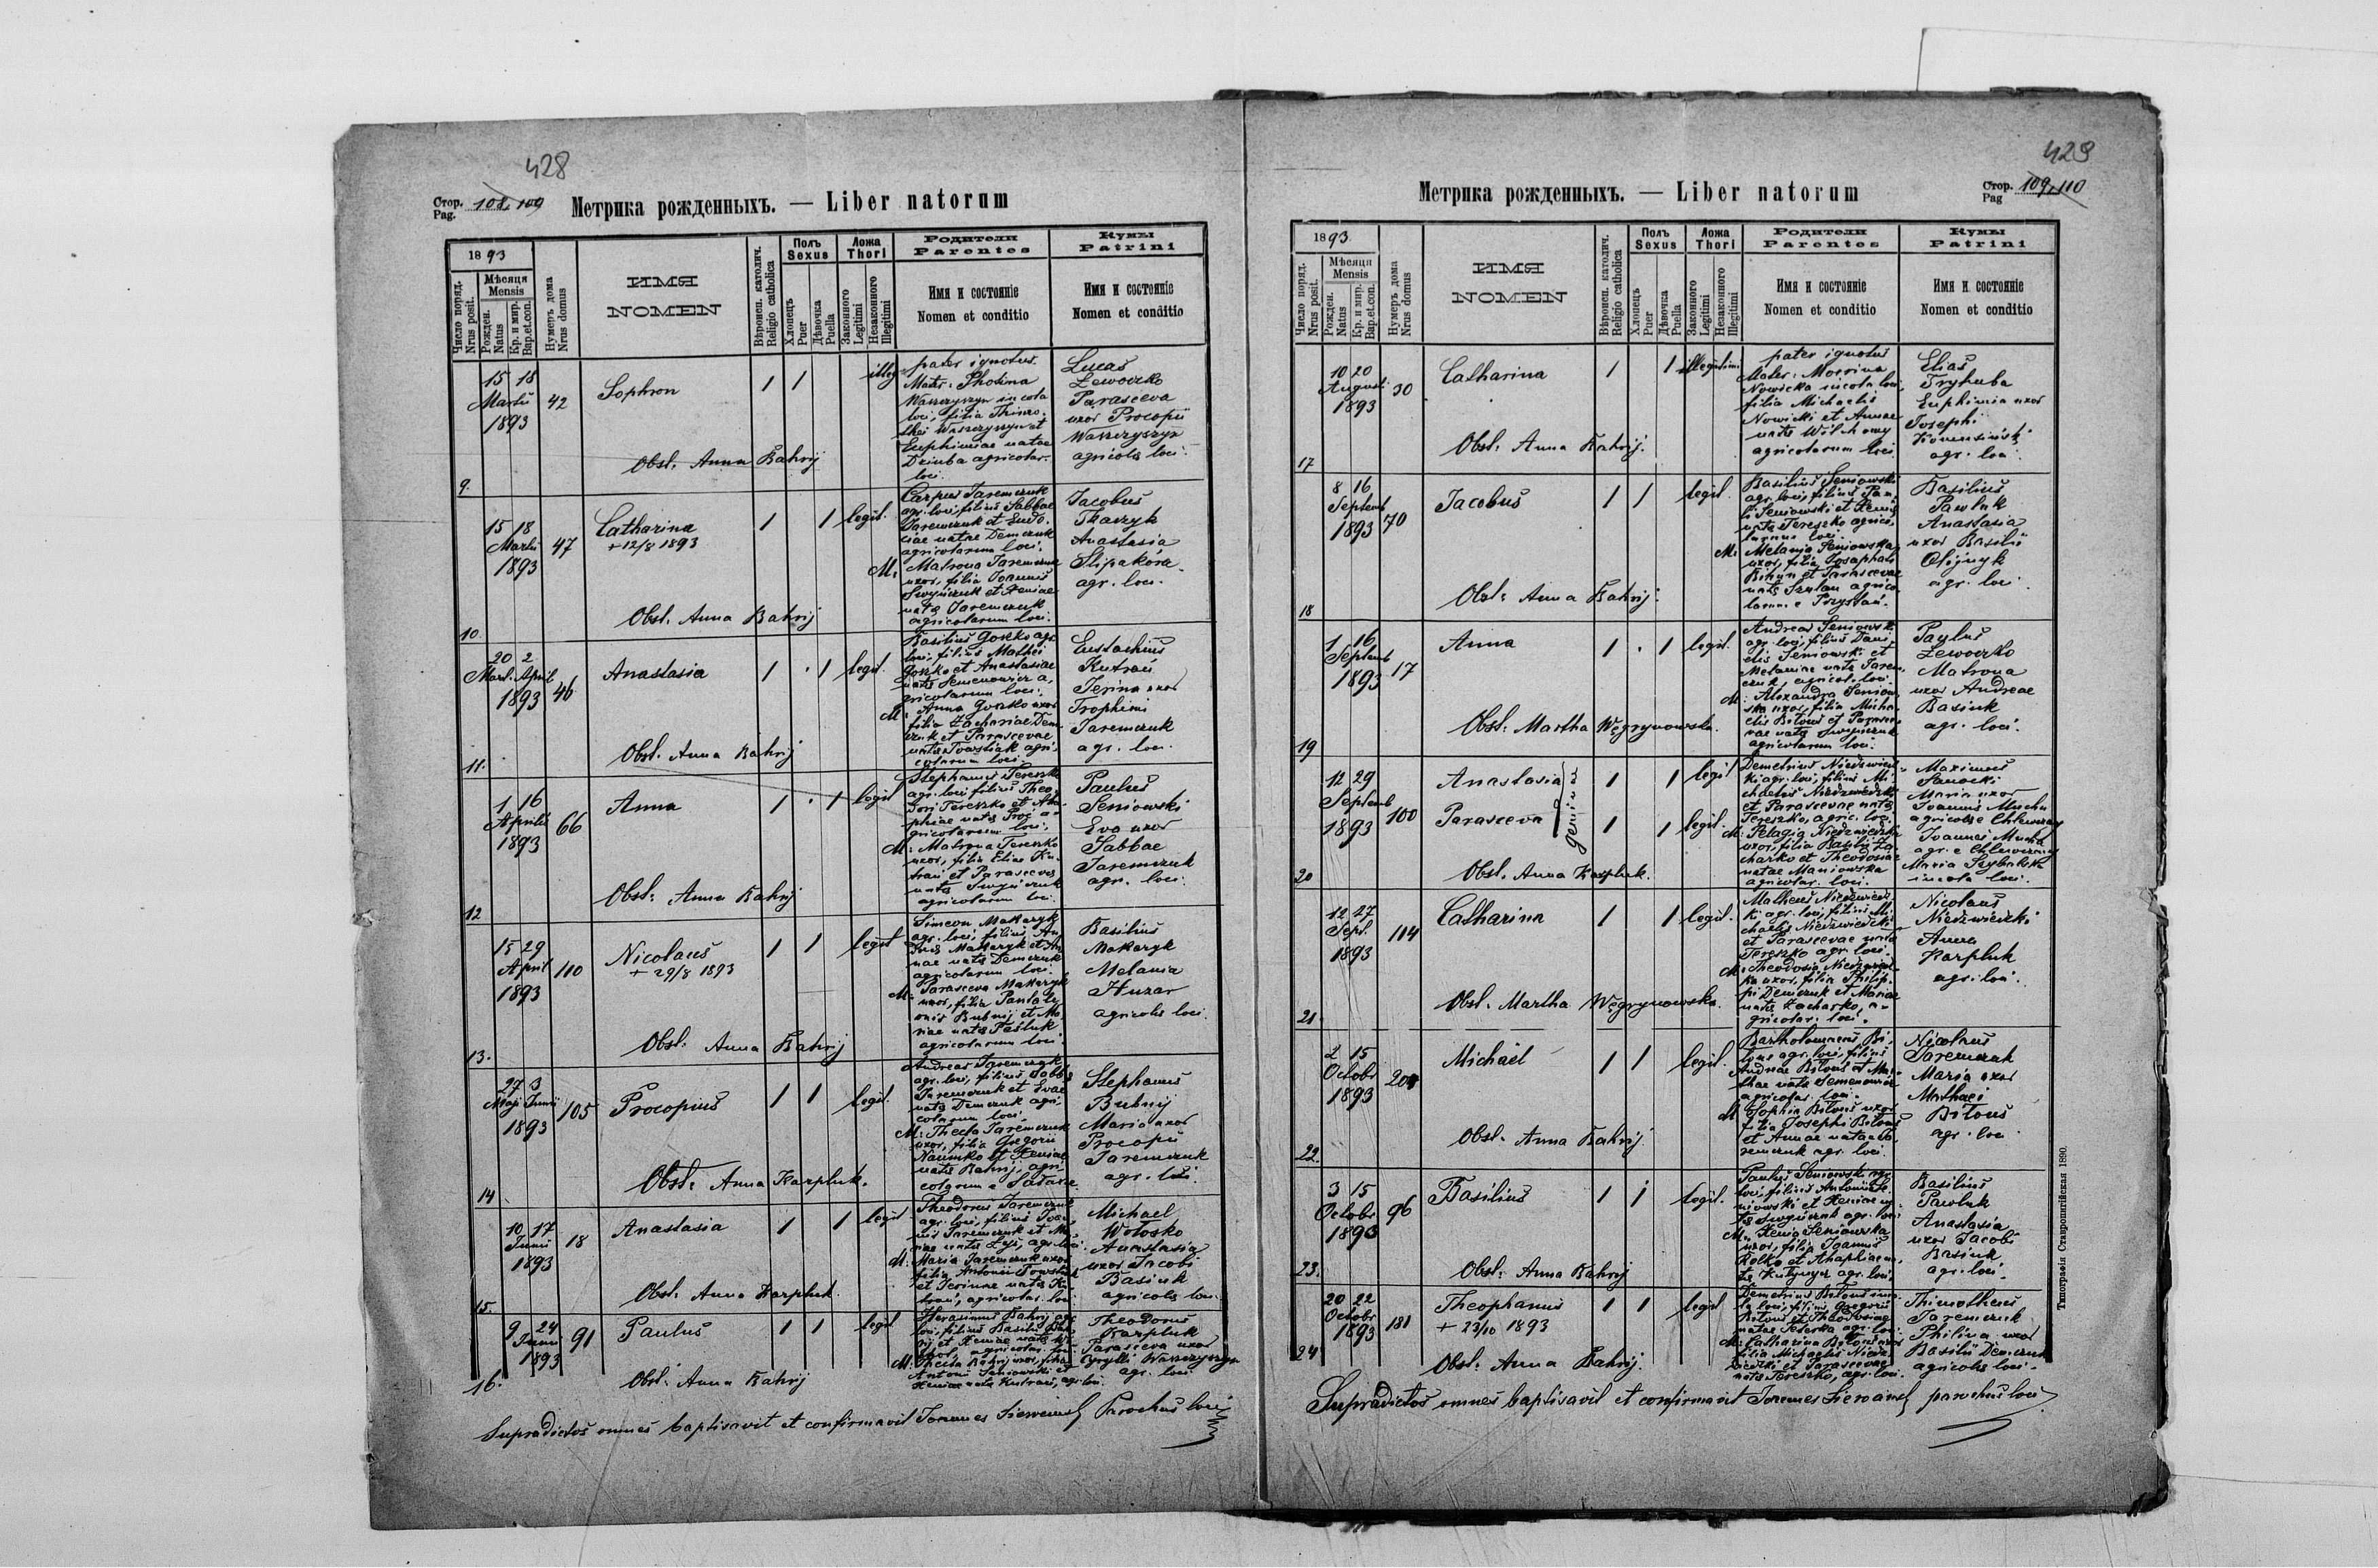 428
Стор. 108. 109
Pag.
Метрика рожденныхъ. — Liber natorum
1893
Число поряд.
Nrus posit.
Мѣсяця
Mensis
Рожден.
Natus
Кр. и мир.
Bap. et. con.
Нумеръ дома
Nrus domus
ИМЯ
NOMEN
Вѣроисп. католич.
Religio catholica
Полъ
Sexus
Хлопецъ
Puer
Дѣвочка
Puella
Ложа
Thori
Законного
Legitimi
Незаконного
Illegitimi
Родители
Parentes
Имя и состояніе
Nomen et conditio
Кумы
Patrini
Имя и состояніе
Nomen et conditio
9.
15 18
Martii
1893
42
Sophron
1 1
illeg.
pater ignotus
Mater: Photina
Waszczyszyn incola
loci, filia
Waszczyszyn et
Euphimiae natae
Dziuba agricolar.
loci.
Lucas
Lewoczko
Parasceva
uxor Procopii
Waszczyszyn
agricolae loci.
Obst. Anna Bahrij
10.
15 18
Martii
1893
47
Catharina
+ 12/8 1893
1 1
legit.
Carpus Jaremczuk
agr. loci, filius Sabbae
Jaremczuk et Eudo-
ciae natae Demczuk
agricolarum loci.
M: Matrona Jaremczuk
uxor, filia Joannis
Swyńczuk et Xeniae
natae Jaremczuk
agricolarum loci.
Jacobus
Tkaczyk
Anastasia
Slipakóra
agr. loci.
Obst. Anna Bahrij
11.
20 2
Mart. April
1893
46
Anastasia
1 1
legit.
Basilius Goszko agr.
loci, filius Mathei
Goszko et Anastasiae
natae Semenowicz a-
gricolarum loci.
M: Anna Goszko uxor
filia Zachariae Dem-
czuk et Parascevae
natae Towstiak agri-
colarum loci.
Eustachius
Kutrań
Irina uxor
Trophimi
Jaremczuk
agr. loci.
Obst. Anna Bahrij
12
1 16
Aprilis
1893
66
Anna
1 1
legit
Stephanus Tereszko
agr. loci filius Theo-
dori Tereszko et Aha-
phiae natae Proć a-
gricolarum loci.
M: Matrona Tereszko
uxor, filia Eliae Ku-
trań et Parascevae
natae Swyńczuk
agricolarum loci.
Paulus
Seniowski
Eva uxor
Sabbae
Jaremczuk
agr. loci.
Obst: Anna Bahrij
13.
15 29
April
1893
110
Nicolaus
+ 29/8 1893
1 1
legit
Simeon Makaryk
agr. loci, filius An-
dreae Makaryk et An-
nae natae Demczuk
agricolarum loci.
M: Parasceva Makaryk
uxor, filia Pantale-
onis Bubnij et Ma-
riae natae Pasluk
agricolarum loci.
Basilius
Makaryk
Melania
Huzar
agricolae loci.
Obst: Anna Bahrij
14
27 3
Maji Junii
1893
105
Procopius
1 1
legit.
Andreas Jaremczuk
agr. loci, filius Sabbae
Jaremczuk et Evae
natae Demczuk agri-
colarum loci.
M: Thecla Jaremczuk
uxor, filia Gregorii
Naumko et Xeniae
natae Bahrij, agri-
colarum e
Stephanus
Bubnij
Maria uxor
Procopii
Jaremczuk
agr. loci.
Obst: Anna Karpluk.
15.
10 17
Junii
1893
18
Anastasia
1 1
legit
Theodorus Jaremczuk
agr. loci, filius Joan-
nis Jaremczuk et Ma-
riae natae Łys, agr. loci.
M: Maria Jaremczuk uxor
filia Antonii Towstiak
et Irinae natae Ku-
trań, agricolar. loci
Michael
Wołosko
Anastasia
uxor Jacobi
Basiuk
agricolae loci.
Obst: Anna Karpluk
16.
9 24
Junii
1893
91
Paulus
1 1
legit
Herasimus Bahrij agr.
loci, filius Basilii Bah-
rij et Xeniae natae
agricolar. loci
M: Thecla Bahrij uxor, filia
Antonii Seniowski et
Xeniae natae Kutrań, agr. loci.
Theodorus
Karpluk
Parasceva uxor
Cyrylli Waszczyszyn
agr. loci
Obst: Anna Bahrij
Supradictos omnes baptisavit et confirmavit Joannes Parochus loci
429
Метрика рожденныхъ. — Liber natorum
Стор. 109. 110
Pag
1893.
Число поряд.
Nrus posit.
Мѣсяця
Mensis
Рожден.
Natus
Кр. и мир.
Bap. et. con.
Нумеръ дома
Nrus domus
ИМЯ
NOMEN
Вѣроисп. католич.
Religio catholica
Полъ
Sexus
Хлопецъ
Puer
Дѣвочка
Puella
Ложа
Thori
Законного
Legitimi
Незаконного
Illegitimi
Родители
Parentes
Имя и состояніе
Nomen et conditio
Кумы
Patrini
Имя и состояніе
Nomen et conditio
17
10 20
Augusti
1893
30
Catharina
1 1
illegitimi
pater ignotus
Mater: Mocrina
Nowicka incola loci,
filia Michaelis
Nowicki et Annae
natae Wilhowy
agricolarum loci
Elias
Tryhuba
Euphimia uxor
Josephi
agr. loci.
Obst. Anna Bahrij.
18
8 16
Septemb
1893
70
Jacobus
1 1
legit.
Basilius Seniowski
agr. loci, filius Pau-
li Seniowski et Xeniae
natae Tereszko agrico-
larum loci.
M: Melania Seniowska
uxor, filia Josaphati
Bihun et Parascevae
natae Szulan agrico-
larum e Przystań.
Basilius
Pawluk
Anastasia
uxor Basilii
Olijnyk
agr. loci.
Obst: Anna Bahrij.
19
1 16
Septemb
1893
17
Anna
1 . 1
legit.
Andreas Seniowski
agr. loci, filius Dani-
elis Seniowski et
Melaniae natae Jarem-
czuk, agricol. loci.
M: Alexandra Seniow-
ska uxor, filia Micha-
elis Bitous et Parasce-
vae natae Swyńczuk
agricolarum loci.
Paulus
Lewoczko
Matrona
uxor Andreae
Basiuk
agr. loci.
Obst: Martha Węgrynowska.
20
12 29
Septemb
1893
100
Anastasia
Parasceva
gemini
1 1 legit
1 1 legit.
Demetrius Niedzwiedz-
ki agr. loci, filius Mi-
chaelis Niedzwiedzki
et Parascevae natae
Tereszko, agric. loci.
M: Pelagia Niedzwiedzka
uxor, filia Basilii Za-
charko et Theodosiae
natae Maniowska
agricolar. loci.
Maximus
Sanocki
Maria uxor
Joannis Mucha
agricolae e Chlewczany
Joannes Mucha
agr. e Chlewczany
Maria Szybalska
incola loci.
Obst. Anna Karpluk.
21.
12 27
Sept.
1893
114
Catharina
1 1
legit.
Matheus Niedzwiedz-
ki agr. loci, filius Mi-
chaelis Niedzwiedzki
et Parascevae natae
Tereszko agr. loci.
M: Theodosia Niedzwiedz-
ka uxor, filia Philip-
pi Demczuk et Mariae
natae Zacharko, a-
gricolar. loci.
Nicolaus
Niedzwiedzki
Anna
Karpluk
agr. loci.
Obst. Martha Węgrynowska.
22.
2 15
Octobr
1893
201
Michael
1 1
legit.
Bartholomaeus Bi-
tous agr. loci, filius
Andreae Bitous et Mar-
thae natae Semenowicz
agricolar. loci.
M: Sophia Bitous uxor
filia Josephi Bitous
et Annae natae Ja-
remczuk agr. loci.
Nicolaus
Jaremczuk
Maria uxor
Mathaei
Bitous
agr. loci
Obst. Anna Bahrij.
23.
3 15
Octobr
1893
96
Basilius
1 1
legit.
Paulus Seniowski agr.
loci, filius Antonii Se-
niowski et Xeniae na-
tae Swyńczuk agr. loci
M: Xenia Seniowska
uxor, filia Joannis
Rolko et Ahaphiae na-
tae agr. loci.
Basilius
Pawluk
Anastasia
uxor Jacobi
Basiuk
agr. loci.
Obst: Anna Bahrij
24
20 22
Octobr
1893
181
Theophanus
+ 23/10 1893
1 1
legit
Demetrius Bitous inco-
la loci, filius Gregorii
Bitous et Theodosiae
natae agr. loci
M: Catharina Bitous uxor
filia Michaelis Niedz-
wiedzki et Parascevae
natae Tereszko, agr. loci.
Thimotheus
Jaremczuk
Philina uxor
Basilii Demczuk
agricolae loci.
Obst: Anna Bahrij.
Supradictos omnes baptisavit et confirmavit Joannes parochus loci
Типографія Ставропигійская 1890.